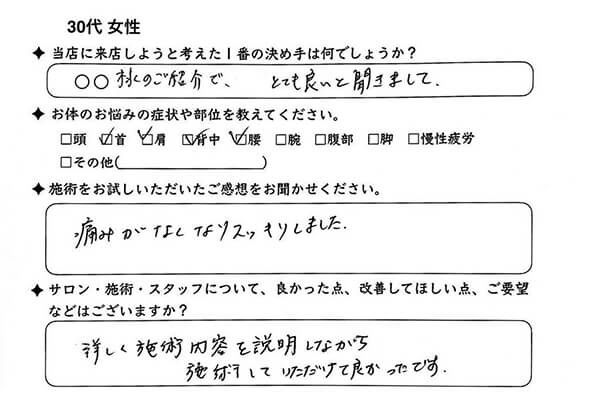 30代 女性
✦ 当店に来店しようと考えた1番の決め手は何でしょうか？
○○様のご紹介で、 とても良いと聞きまして.
✦ お体のお悩みの症状や部位を教えてください。
□頭 ☑首 ☑肩 ☑背中 ☑腰 □腕 □腹部 □脚 □慢性疲労
□その他( )
✦ 施術をお試しいただいたご感想をお聞かせください。
痛みがなくなりスッキリしました.
✦ サロン・施術・スタッフについて、良かった点、改善してほしい点、ご要望
などはございますか？
詳しく施術内容を説明しながら
施術していただけて良かったです.